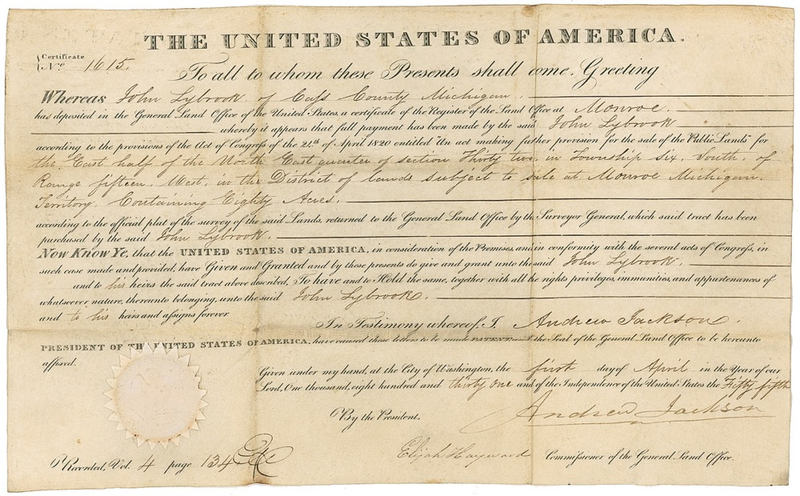 THE UNITED STATES OF AMERICA.
Certificate
No. 1615.
To all to whom these Presents shall come, Greeting
Whereas John Lybrook, of Cass County Michigan.
has deposited in the General Land Office of the United States, a certificate of the Register of the Land Office at Monroe.
whereby it appears that full payment has been made by the said John Lybrook
according to the provisions of the Act of Congress of the 24th of April 1820 entitled "An act making further provision for the sale of the Public Lands" for
the East half of the North East quarter of section Thirty two, in Township six, South, of
Range fifteen, West, in the District of lands subject to sale at Monroe Michigan
Territory, Containing Eighty Acres.
according to the official plat of the survey of the said Lands, returned to the General Land Office by the Surveyor General, which said tract has been
purchased by the said John Lybrook.
Now Know Ye, that the UNITED STATES OF AMERICA, in consideration of the Premises, and in conformity with the several acts of Congress, in
such case made and provided, have Given and Granted and by these presents do give and grant unto the said John Lybrook,
and to his heirs the said tract above described, To have and to Hold the same, together with all the rights privileges, immunities, and appurtenances of
whatsoever nature, thereunto belonging, unto the said John Lybrook,
and to his heirs and assigns forever.
In Testimony whereof I, Andrew Jackson,
PRESIDENT OF THE UNITED STATES OF AMERICA, have caused these letters to be made PATENT, and the Seal of the General Land Office to be hereunto
affixed.
Given under my hand, at the City of Washington, the first day of April in the Year of our
Lord, One thousand, eight hundred and thirty one and of the Independence of the United States the Fifty fifth
By the President.
Andrew Jackson
Elijah Hayward Commissioner of the General Land Office.
Recorded, Vol. 4 page 134